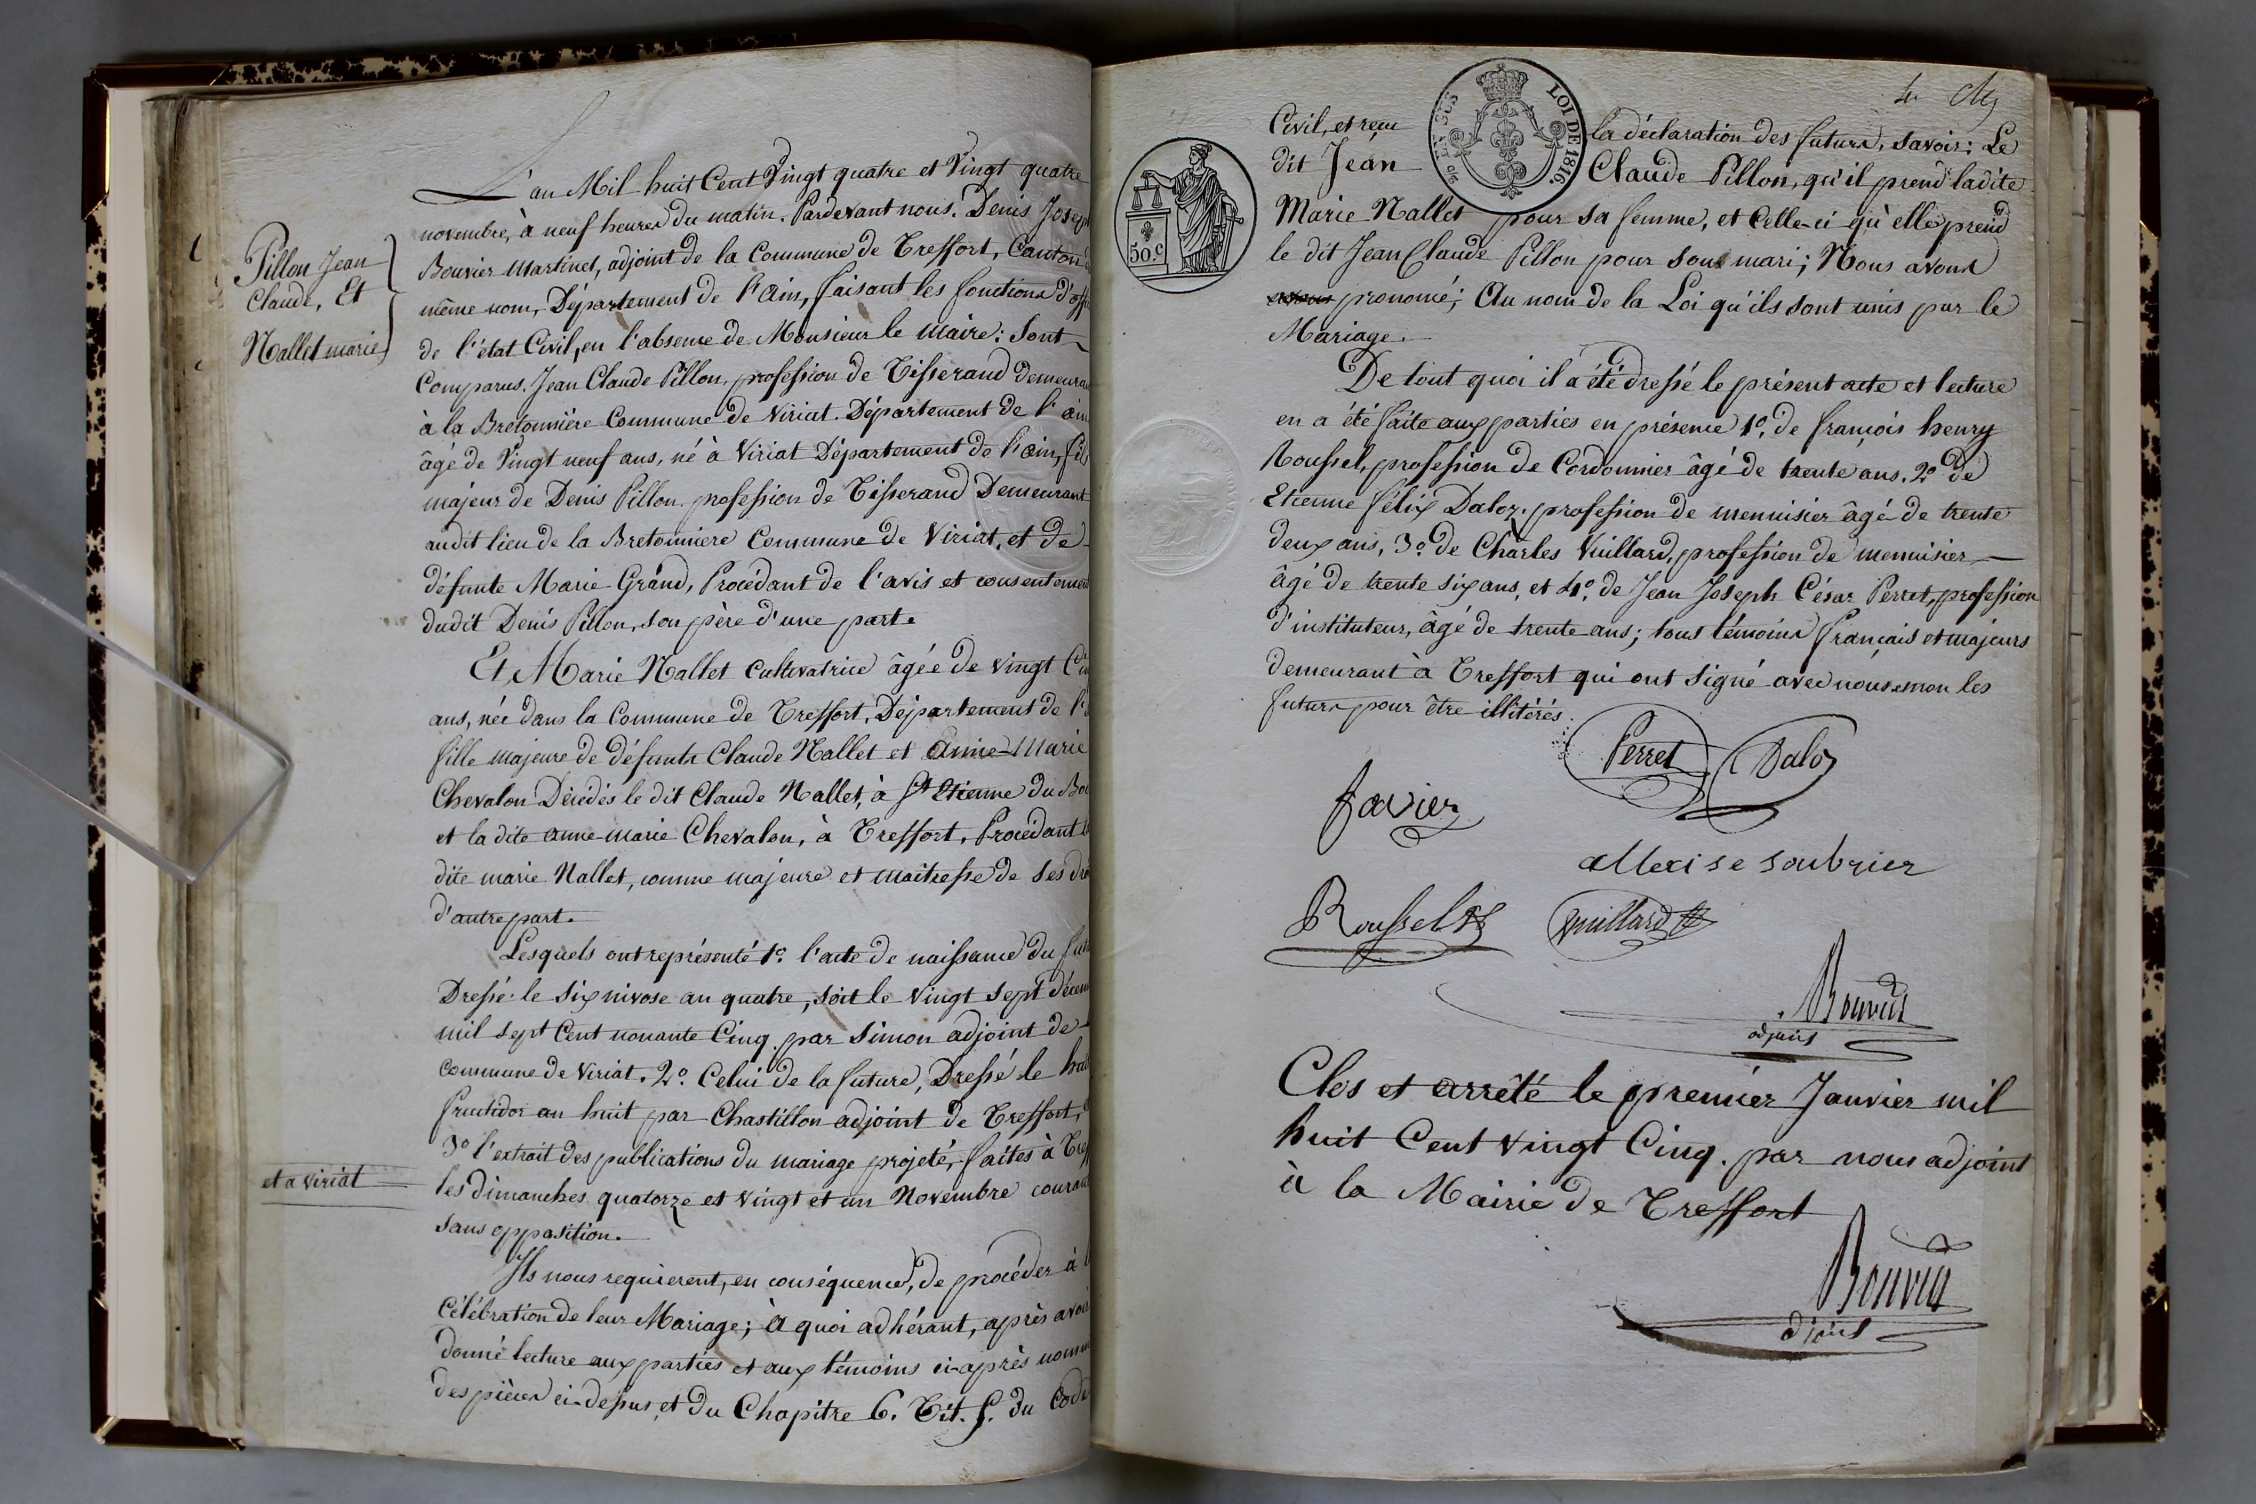 Pillon Jean
Claude, Et
Nallet marie
L'an Mil huit Cent Vingt quatre et Vingt quatre
novembre, à neuf heures du matin. Pardevant nous. Denis Joseph
Bouvier Martinet, adjoint de la Commune de Treffort, Canton
même nom, Département de l'ain, faisant les fonctions d'offi
de l'état Civil, en l'absence de Monsieur le Maire: Sont
Comparus. Jean Claude Pillon, profession de Tisserand demeuran
à la Bretonnière Commune de Viriat. Département de l'ain
âgé de Vingt neuf ans, né à Viriat Département de l'ain, fils
majeur de Denis Pillon. profession de Tisserand Demeurant
audit lieu de la Bretonniere Commune de Viriat, et de
défunte Marie Grand, Procédant de l'avis et consentement
dudit Denis Pillon, son père d'une part.
Et Marie Nallet cultivatrice âgée de vingt Cin
ans, née dans la Commune de Treffort, Département de l'
fille majeure de défunts Claude Nallet et Anne-Marie
Chevalon Décédés le dit Claude Nallet, à St Etienne du Bo
et la dite anne-marie Chevalon, à Treffort, Procédant
dite marie Nallet, comme majeure et maitresse de ses dro
d'autre part.
Lesquels ont représenté 1o. l'acte de naissance du fut
Dressé le six nivose an quatre, soit le vingt sept décem
mil sept Cent nonante Cinq. par Simon adjoint de
commune de Viriat. 2o. Celui de la future, Dressé le huit
fructidor an huit par Chastillon adjoint de Treffort,
3o l'extrait des publications du mariage projeté, faites à Tref
et a viriat
les dimanches quatorze et vingt et un Novembre courant
sans opposition.
Ils nous requierent, en conséquence, de procéder à
Célébration de leur Mariage; à quoi adhérant, après avoir
donné lecture aux parties et aux témoins ci-après nomm
des pièces ci-dessus et du Chapitre 6. Tit. 5. du Code
Civil, et reçu la déclaration des futurs, savoir: Le
dit Jean Claude Pillon, qu'il prend ladite
LOI DE 1816.
EN SUS
50.c
Marie Nallet pour sa femme, et Celle-ci qu'elle prend
le dit Jean Claude Pillon pour son mari; Nous avons
avons prononcé; Au nom de la Loi qu'ils sont unis par le
Mariage.
De tout quoi il a été dressé le présent acte et lecture
en a été faite aux parties en présence 1o. de françois henry
Roussel, profession de Cordonnier âgé de trente ans. 2o de
Etienne félix Daloz. profession de menuisier âgé de trente
deux ans, 3o de Charles Vuillard, profession de menuisier
âgé de trente six ans, et 4o. de Jean Joseph César Perret, profession
d'instituteur, âgé de trente ans; tous témoins français et majeurs
demeurant à Treffort qui ont signé avec nous et non les
futurs pour être illitérés.
Perret Daloz
favier
allexise soubrier
Roussel Vuillard
Bouvier
adjoint
Clos et arrêté le premier Janvier mil
huit Cent vingt Cinq. par nous adjoint
à la Mairie de Treffort
Bouvier
adjoint